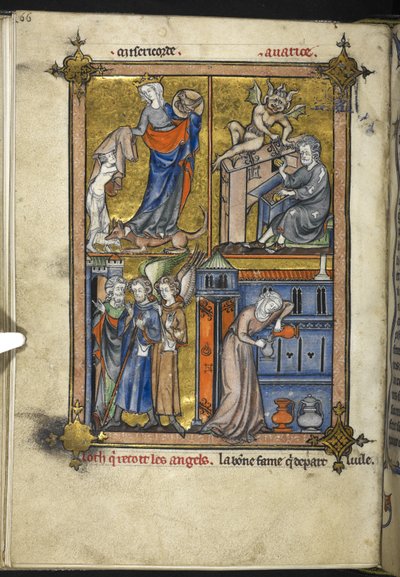 66
misericorde. auarice.
loth q̄ recoit les angels. la bōne fame q̄ depart luile.